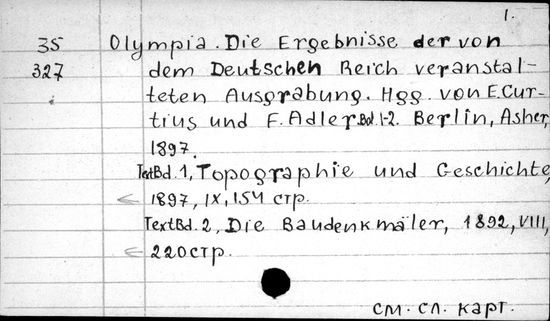 1.
35 Olympia. Die Ergebnisse der von
327 dem Deutschen Reich veranstal-
teten Ausgrabung. Hgg. von E. Cur-
tius und F. Adler Bd. 1-2. Berlin, Asher,
1897.
Text Bd. 1, Topographie und Geschichte,
1897, IX, 154 стр.
Text Bd. 2, Die Baudenkmäler, 1892, VIII,
220 стр.
см. сл. карт.